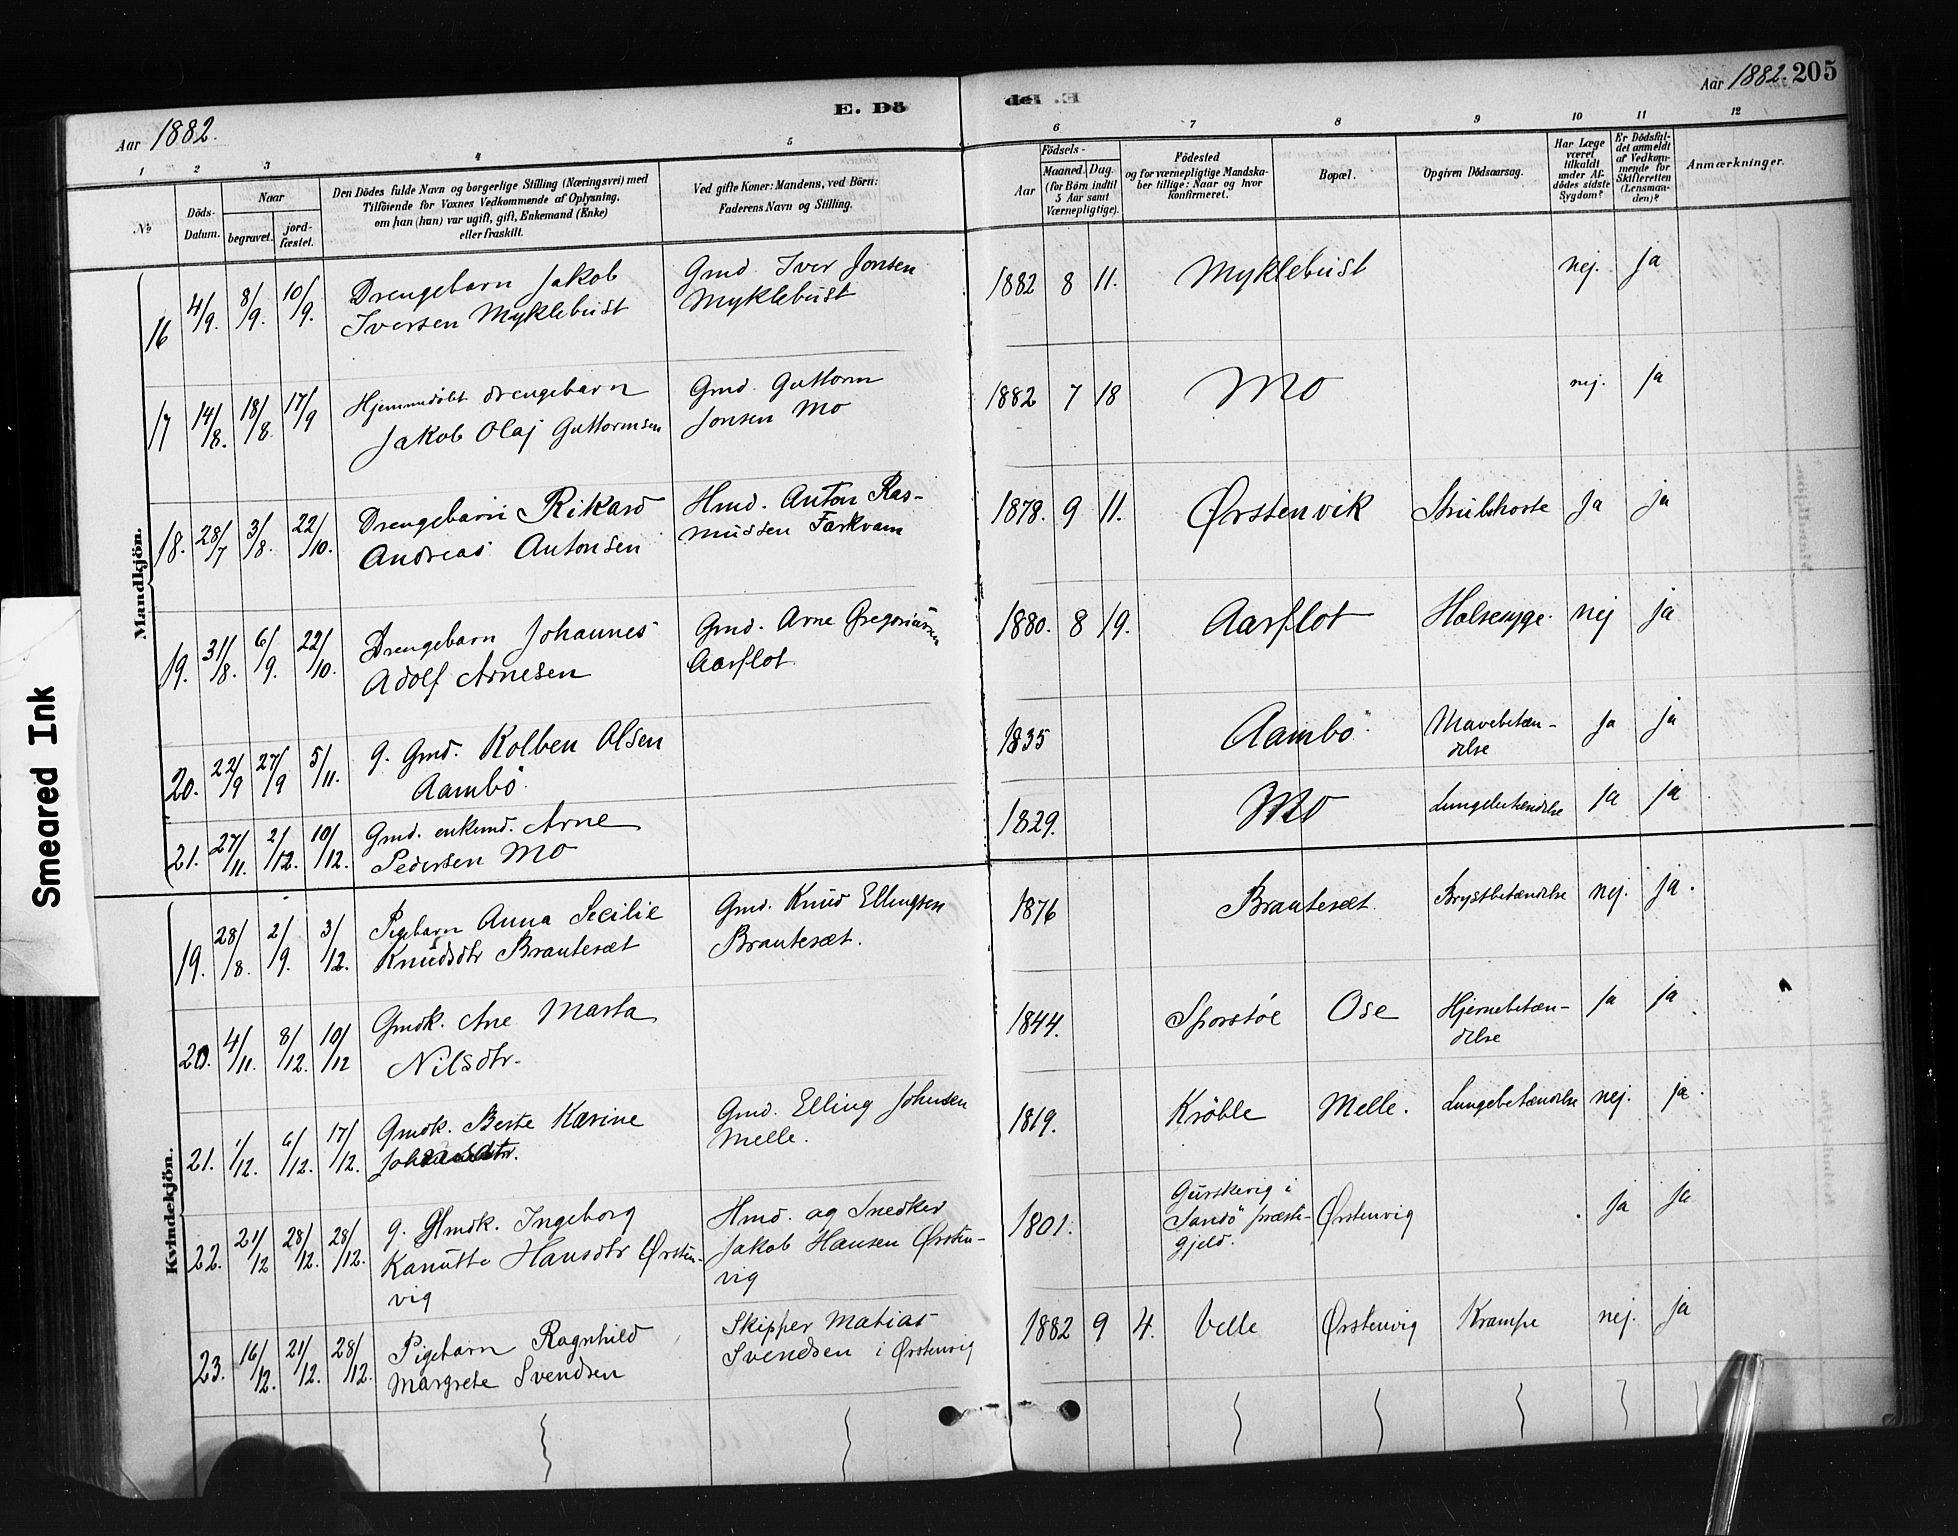 Smeared Ink
Aar 1882.
E. Dö
1 2 3 4 5
№
Döds-
Datum.
Naar
begravet.
jord-
fæstet.
Den Dödes fulde Navn og borgerlige Stilling (Næringsvei) med
Tilföiende for Voxnes Vedkommende af Oplysning,
om han (hun) var ugift, gift, Enkemand (Enke)
eller fraskilt.
Ved gifte Koner: Mandens, ved Börn:
Faderens Navn og Stilling.
Mandkjön.
16 4/9. 8/9. 10/9. Drengebarn Jakob
Iversen Myklebust
Gmd. Iver Jonsen
Myklebust
17 14/8. 18/8. 17/9 Hjemmedöbt drengebarn
Jakob Olaj Guttormsen
Gmd. Guttorm
Jonsen Mo
18. 28/7 3/8. 22/10. Drengebarn Rikard
Andreas Antonsen
Hmd. Anton Ras-
mussen Farkvam
19. 31/8. 6/9. 22/10. Drengebarn Johannes
Adolf Arnesen
Gmd. Arne Gregoriussen
Aarflot
20. 22/9 27/9 5/11. g. Gmd. Kolben Olsen
Aambö.
21. 27/11. 2/12. 10/12. Gmd. enkemd. Arne
Pedersen Mo
Kvindekjön.
19. 28/8. 2/9. 3/12. Pigebarn Anna Secilie
Knudsdtr Brautesæt
Gmd. Knud Ellingsen
Brautesæt.
20. 4/11. 8/12. 10/12 Gmdk. Ane Marta
Nilsdtr.
21. 1/12. 6/12. 17/12. Gmdk. Berte Karine
Gmd. Elling Johnsen
Melle.
22. 21/12 28/12. 28/12. g. Hmdk. Ingeborg
Kanutte Hansdtr Ørsten-
vig
Hmd. og Snedker
Jakob Hansen Ørsten-
vig
23. 16/12. 21/12. 28/12. Pigebarn Ragnhild
Margrete Svendsen
Skipper Matias
Svendsen i Ørstenvig
de1 .E
Aar 1882. 205
6 7 8 9 10 11 12
Födsels-
Aar
Maaned. Dag.
(for Börn indtil
5 Aar samt
Værnepligtige).
Födested
og for værnepligtige Mandska-
ber tillige: Naar og hvor
konfirmeret.
Bopæl.
Opgiven Dödsaarsag.
Har Læge
været
tilkaldt
under Af-
dödes sidste
Sygdom?
Er Dödsfal-
det anmeldt
af Vedkom-
mende for
Skifteretten
(Lensman-
den)?
Anmærkninger.
1882 8 11. Myklebust nej. ja
1882 7 18 Mo nej. ja
1878. 9 11. Ørstenvik Strubehoste ja ja
1880. 8 19. Aarflot Halsesyge. nej ja
1835 Aambö Mavebetæn-
delse ja ja
1829. Mo Lungebetændelse ja ja
1876 Brautesæt Brystbetændelse nej. ja.
1844. Sporstöe Ose Hjernebetæn-
delse ja ja
1819. Kröble Melle. Lungebetændelse nej. ja.
1801. Gurskevig i
Sandö præste-
gjeld. Ørstenvig ja ja
1882 9 4. Velle Ørstenvig Krampe nej. ja